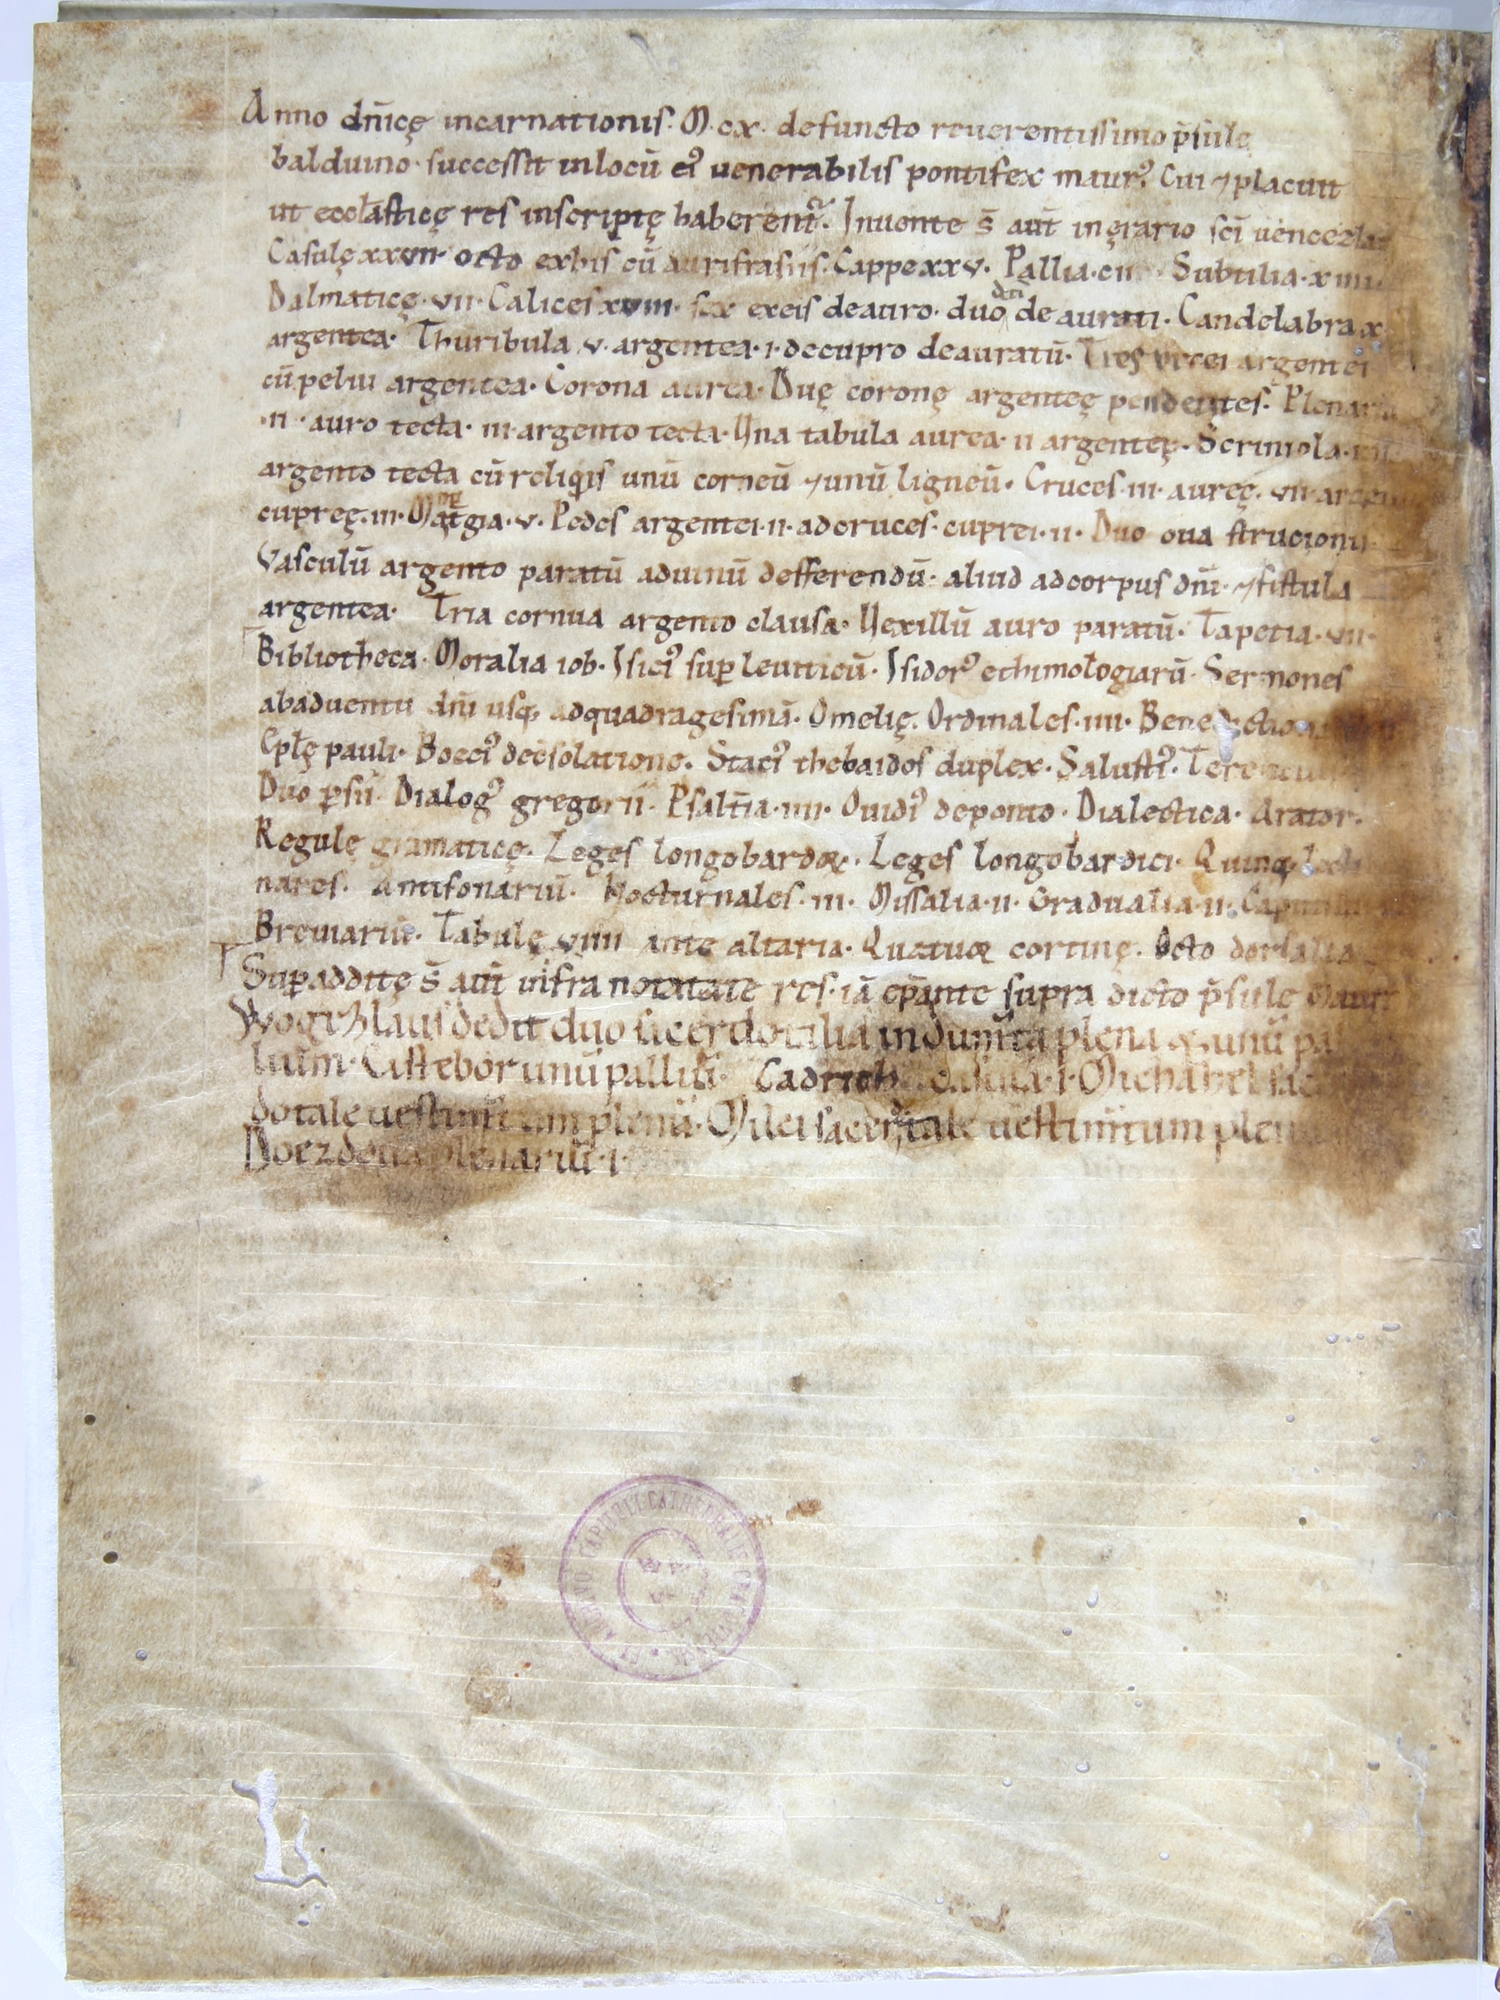 Anno dn̄icę incarnationis. M.cx. defuncto reuerentissimo p̄sule
balduino. successit in locū ei᷒ uenerabilis pontifex maur᷒. Cui ⁊ placuit
ut eccl̄asticę res inscriptę haberent᷑. Inuente s̄ aut̄ in ęrario sc̄i uencezlai
Casulę xxvii. octo ex his cū aurifrasiis. Cappe xxv. Pallia. cii. Subtilia. x iiii.
Dalmaticę. vii. Calices xviii. sex ex eis de auro. duo de aurati. Candelabra x
argentea. Thuribula v. argentea. i. de cupro deauratū. Tres urcei argentei
cū pelui argentea. Corona aurea. Duę coronę argenteę pendentes. Plenaria
.ii. auro tecta. iii. argento tecta. Una tabula aurea. ii argenteę. Scriniola.
argento tecta cū reliq̇is unū corneū ⁊ unū ligneū. Cruces. iii. aureę. vii.
cupreę. iii. v. Pedes argentei. ii. ad cruces. cuprei. ii. Duo oua strucionis
Vasculū argento paratū ad uinū defferendū. aliud ad corpus dn̄i. ⁊ fistula
argentea. Tria cornua argento clausa. Uexillū auro paratū. Tapetia. vii.
Bibliotheca. Moralia iob. Isici᷒ sup̱ leuiticū. Isidor᷒ ethimologiarū. Sermones
ab aduentu dn̄i usq; ad quadragesimā. Omelię. Ordinales. iiii.
Ep̄lę pauli. Boeci᷒ de c̄solatione. Staci᷒ thebaidos duplex. Salusti᷒.
Duo p̱sii. Dialog᷒ gregorii. Psalt̄ia. iiii. Ouidi᷒ de ponto. Dialectica. Arator.
Regulę gramaticę. Leges longobardoꝝ. Leges longobardici. Quinq;
nares. Antifonariū. Nocturnales. iii. Missalia. ii. Gradualia. ii.
Breuiariū. Tabulę viiii ante altaria. Quatuor cortinę. Octo dorsalia
Sup̱additę s̄ aut̄ infra notatate res. iā ep̄ante supra dicto p̄sule Mauri
Wogizlaus dedit duo sacerdotalia indum̄ta plena & unū pal
lium. Cistebor unū palliū. Cadrich casula. i. Michahel sacer
dotale uestim̄tum plenū. Milei sacerdotale uestim̄tum plen
plenariū. i.